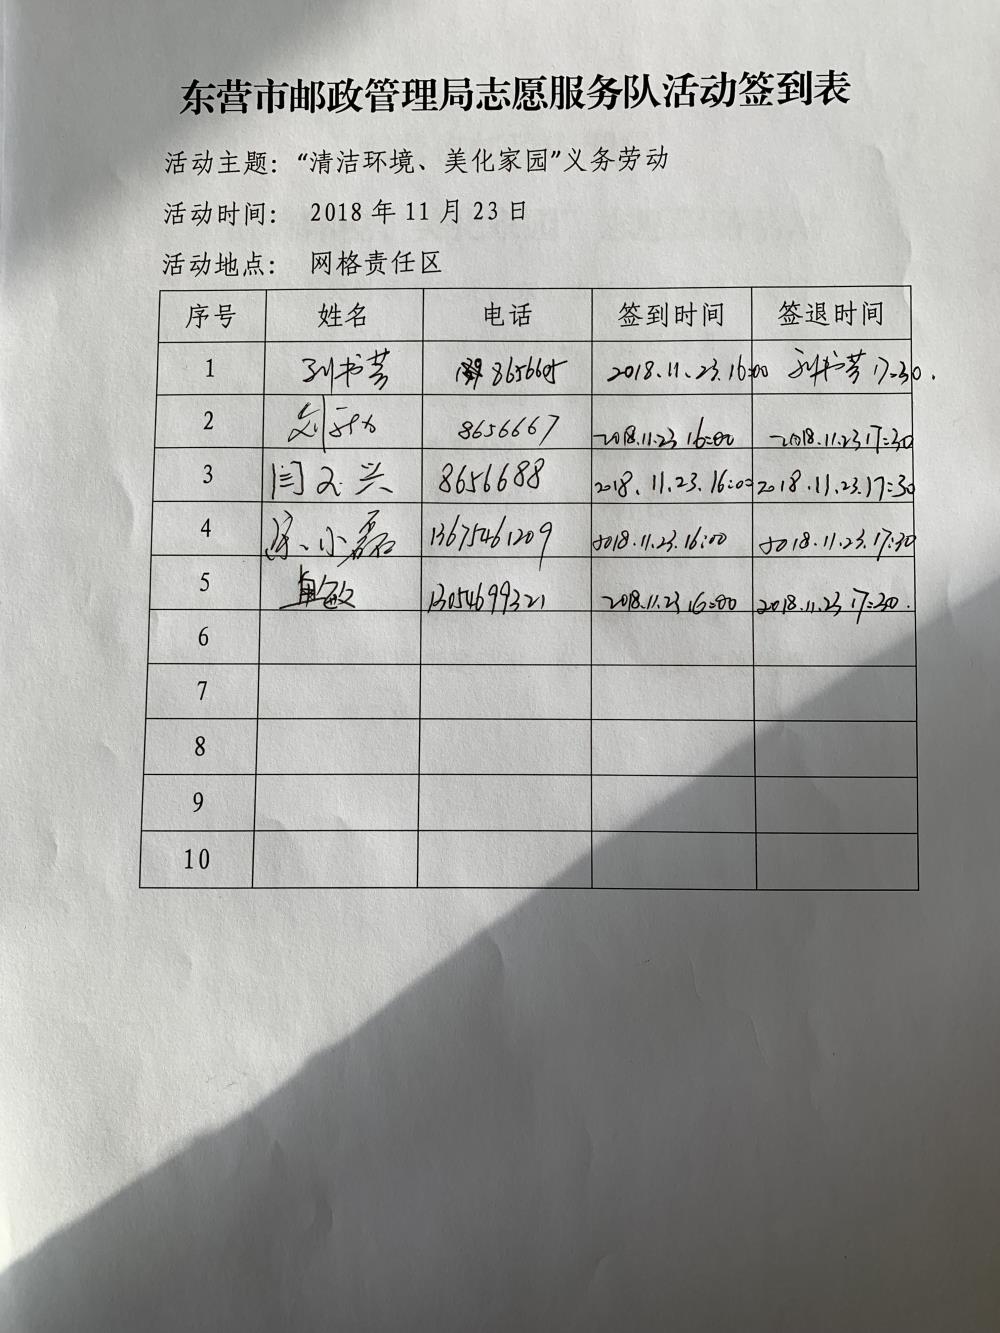 东营市邮政管理局志愿服务队活动签到表
活动主题：“清洁环境、美化家园”义务劳动
活动时间： 2018 年 11 月 23 日
活动地点： 网格责任区
序号 姓名 电话 签到时间 签退时间
1 刘书芳 8656605 2018.11.23.16:00 刘书芳 17:30.
2 8656667 2018.11.23 16:00 2018.11.23 17:30
3 闫文兴 8656688 2018.11.23.16:00 2018.11.23.17:30
4 小磊 13675461209 2018.11.23.16:00 2018.11.23.17:30
5 敏 13054699321 2018.11.23 16:00 2018.11.23 17:30.
6
7
8
9
10